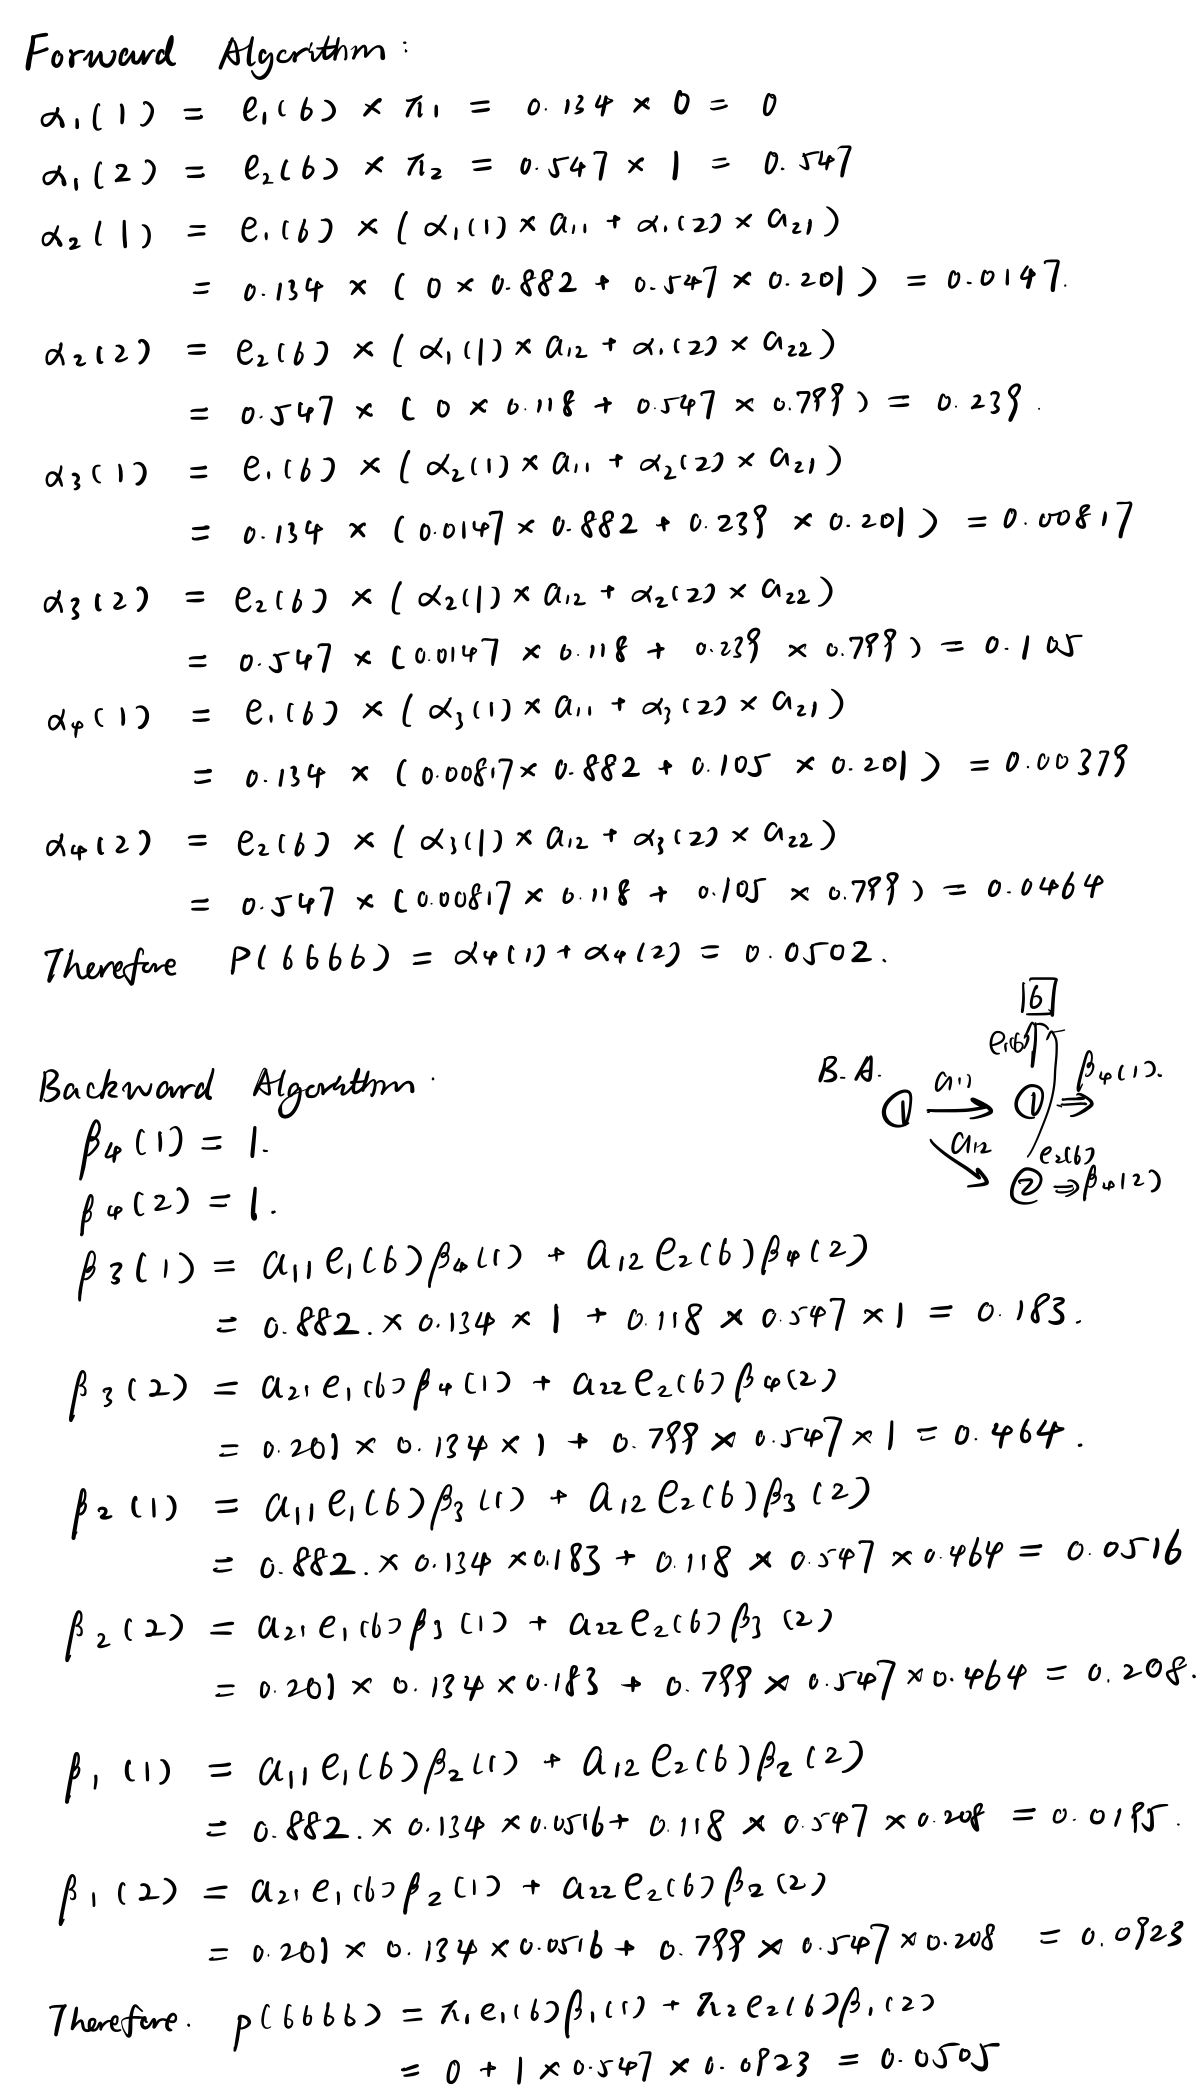 Forward Algorithm:
α₁(1) = e₁(6) × π₁ = 0.134 × 0 = 0
α₁(2) = e₂(6) × π₂ = 0.547 × 1 = 0.547
α₂(1) = e₁(6) × (α₁(1) × a₁₁ + α₁(2) × a₂₁)
= 0.134 × (0 × 0.882 + 0.547 × 0.201) = 0.0147.
α₂(2) = e₂(6) × (α₁(1) × a₁₂ + α₁(2) × a₂₂)
= 0.547 × (0 × 0.118 + 0.547 × 0.799) = 0.239.
α₃(1) = e₁(6) × (α₂(1) × a₁₁ + α₂(2) × a₂₁)
= 0.134 × (0.0147 × 0.882 + 0.239 × 0.201) = 0.00817
α₃(2) = e₂(6) × (α₂(1) × a₁₂ + α₂(2) × a₂₂)
= 0.547 × (0.0147 × 0.118 + 0.239 × 0.799) = 0.105
α₄(1) = e₁(6) × (α₃(1) × a₁₁ + α₃(2) × a₂₁)
= 0.134 × (0.00817 × 0.882 + 0.105 × 0.201) = 0.00379
α₄(2) = e₂(6) × (α₃(1) × a₁₂ + α₃(2) × a₂₂)
= 0.547 × (0.00817 × 0.118 + 0.105 × 0.799) = 0.0464
Therefore P(6666) = α₄(1) + α₄(2) = 0.0502.
Backward Algorithm.
B.A.
6
e₁(6)
① a₁₁ ① ⇒ β₄(1).
a₁₂ e₂(6)
② ⇒ β₄(2)
β₄(1) = 1.
β₄(2) = 1.
β₃(1) = a₁₁e₁(6)β₄(1) + a₁₂e₂(6)β₄(2)
= 0.882. × 0.134 × 1 + 0.118 × 0.547 × 1 = 0.183.
β₃(2) = a₂₁e₁(6)β₄(1) + a₂₂e₂(6)β₄(2)
= 0.201 × 0.134 × 1 + 0.799 × 0.547 × 1 = 0.464.
β₂(1) = a₁₁e₁(6)β₃(1) + a₁₂e₂(6)β₃(2)
= 0.882. × 0.134 × 0.183 + 0.118 × 0.547 × 0.464 = 0.0516
β₂(2) = a₂₁e₁(6)β₃(1) + a₂₂e₂(6)β₃(2)
= 0.201 × 0.134 × 0.183 + 0.799 × 0.547 × 0.464 = 0.208.
β₁(1) = a₁₁e₁(6)β₂(1) + a₁₂e₂(6)β₂(2)
= 0.882. × 0.134 × 0.0516 + 0.118 × 0.547 × 0.208 = 0.0195.
β₁(2) = a₂₁e₁(6)β₂(1) + a₂₂e₂(6)β₂(2)
= 0.201 × 0.134 × 0.0516 + 0.799 × 0.547 × 0.208 = 0.0923
Therefore. p(6666) = π₁e₁(6)β₁(1) + π₂e₂(6)β₁(2)
= 0 + 1 × 0.547 × 0.0923 = 0.0505